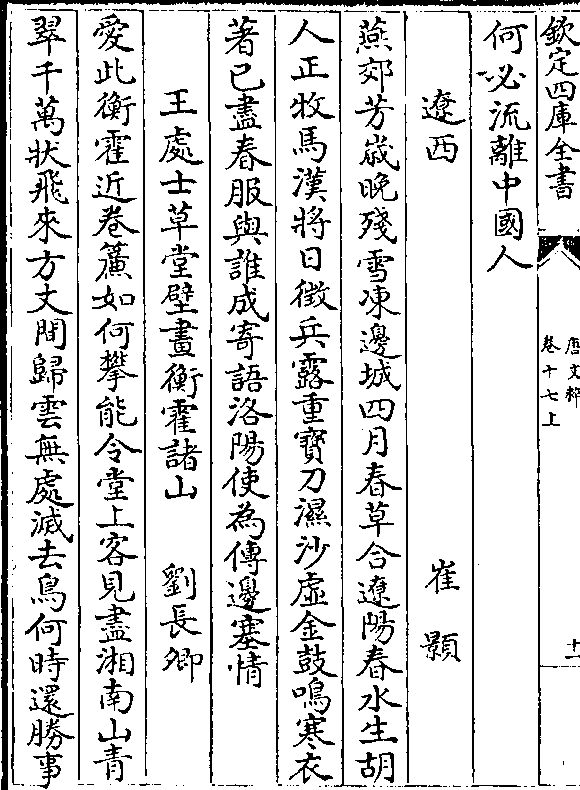 欽定四庫全書
唐文粹
卷十七上
十一
何必流離中國人
遼西 崔顥
燕郊芳歲晚殘雪凍邊城四月春草合遼陽春水生胡
人正牧馬漢將日徵兵露重寶刀濕沙虛金鼓鳴寒衣
著已盡春服與誰成寄語洛陽使為傳邊塞情
王處士草堂壁畫衡霍諸山 劉長卿
愛此衡霍近卷簾如何攀能令堂上客見盡湘南山青
翠千萬狀飛來方丈間歸雲無處滅去鳥何時還勝事